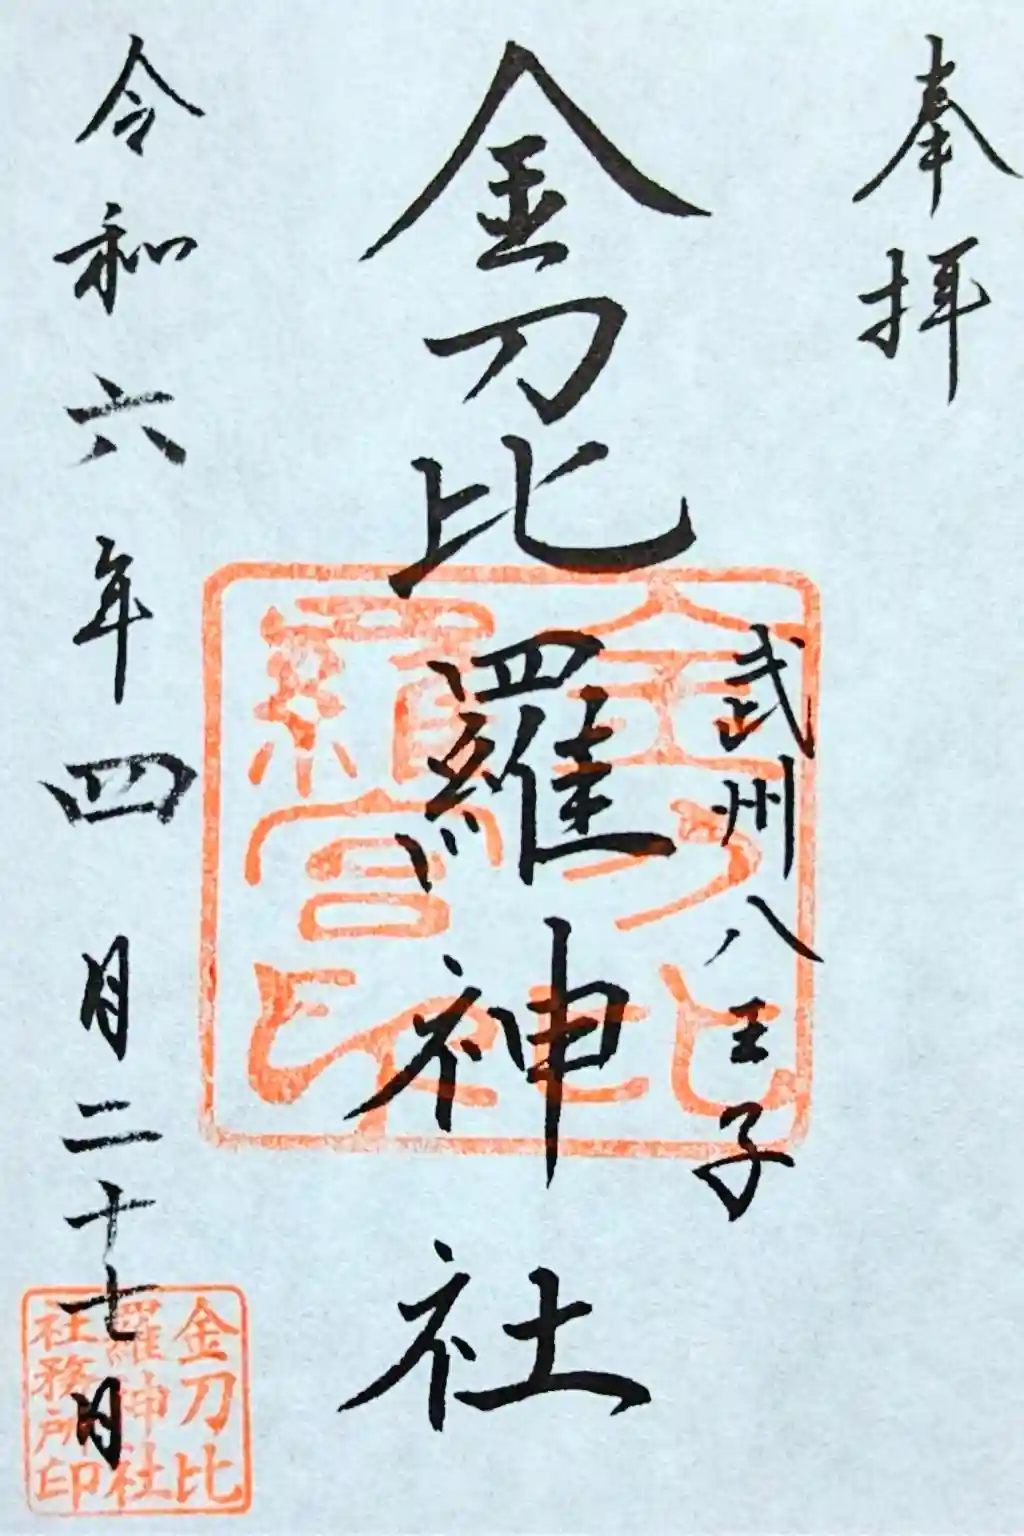 奉拝
武州八王子
金刀比羅神社
令和六年四月二十七日
金刀比
羅神社
社務所印